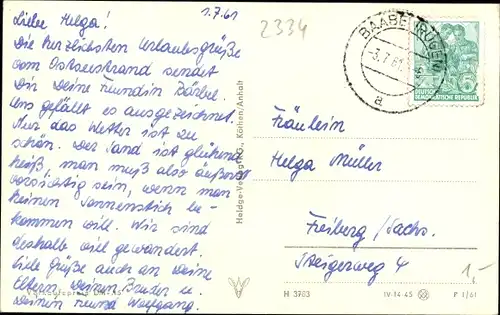 1.7.61
Liebe Helga!
Die herzlichsten Urlaubsgrüße
vom Ostseestrand sendet
Dir Deine Freundin Bärbel.
Uns gefällt es ausgezeichnet.
Nur das Wetter ist zu
schön. Der Sand ist glühend
heiß, man muß also äußerst
vorsichtig sein, wenn man
keinen Sonnenstich be-
kommen will. Wir sind
deshalb viel gewandert.
Liebe Grüße auch an Deine
Eltern, Deinen Bruder u.
Deinen Freund Wolfgang.
2334
BAABE (RÜGEN)
-3.7.61
a
DEUTSCHE
DEMOKRATISCHE REPUBLIK
Fräulein
Helga Müller
Freiberg/Sachs.
Steigerweg 4
1,-
Heldge-Verlag KG., Köthen/Anhalt
H 3763
IV-14-45
P 1/61